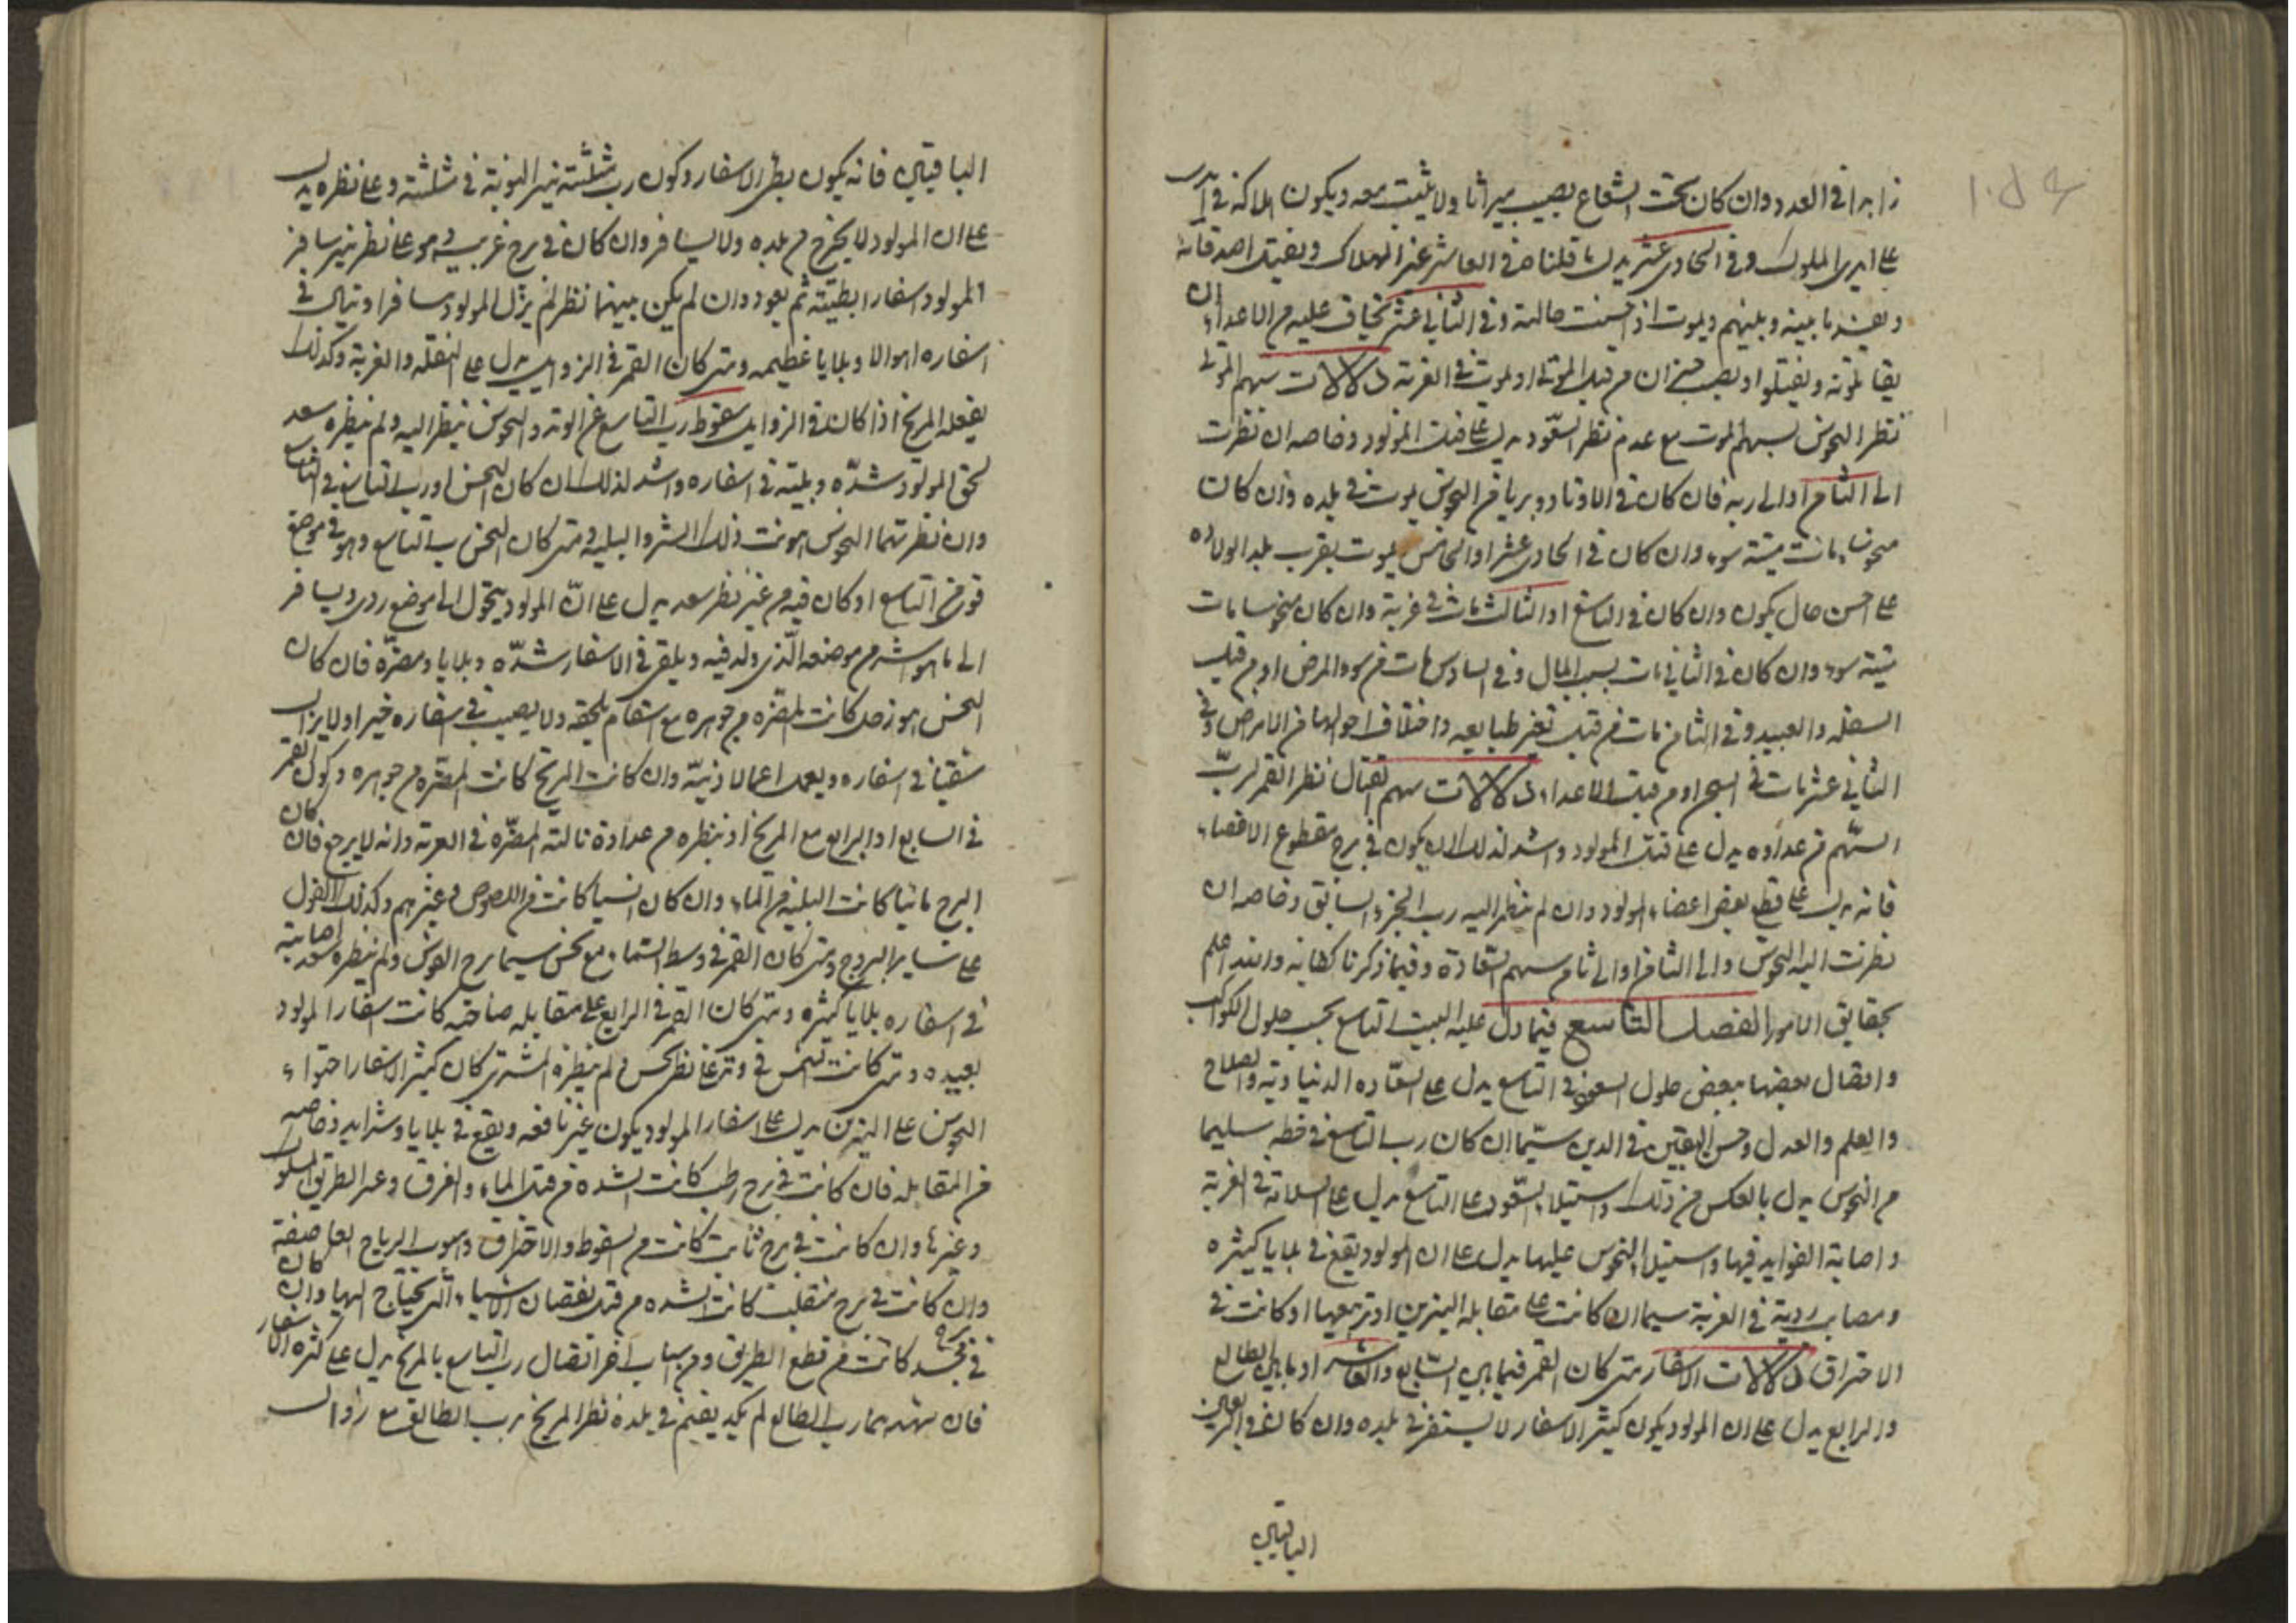 زايدا في العدد وان كان تحت الشعاع يصيب ميراثا ولا يثبت معه ويكون هلاكه في
على ايدي الملوك وفي الحادي عشر يدل ما قلناه في العاشر غير الهلاك واصدقائه
ويفسد ما بينه وبينهم ويموت اذا حسنت حاله وفي الثاني عشر يخاف عليه من الاعداء ان
يقاتلونه ويقتلوا او يصيب خيرا من قبل الموتى او يموت في الغربة دلالات سهم الموت
نظر النحوس لسهم الموت مع عدم نظر السعود يدل على قتل المولود وخاصه ان نظرت
الى الثامن او الى ربه فان كان في الاوتاد وبريا من النحوس يموت في بلده وان كان
منحوسا مات ميتة سوء وان كان في الحادي عشر او الخامس يموت بقرب بلد الولاده
على احسن حال يكون وان كان في التاسع او الثالث مات في غربة وان كان منحوسا مات
ميتة سوء وان كان في الثاني مات بسبب المال وفي السادس مات من سوء المرض او من قبل
السفله والعبيد وفي الثامن مات من قبل تغير طبايعه واختلاف احوالها من الامراض وفي
الثاني عشر مات في السجن او من قبل الاعداء دلالات سهم القتال نظر القمر لرب
السهم من عداوه يدل على قتل المولود واشد لذلك ان يكون في برج مقطوع الاعضاء
فانه يدل على قطع بعض اعضاء المولود وان لم ينظر اليه رب الجزء السابق وخاصه ان
نظرت اليه النحوس والى الثامن او الى ثامن سهم السعادة وفيما ذكرنا كفايه والله اعلم
بحقايق الامور الفصل التاسع فيما دل عليه البيت التاسع بحسب حلول الكواكب
واتصال بعضها ببعض حلول السعود في التاسع يدل على السعاده الدنياوية والصلاح
والعلم والعدل وحسن اليقين في الدين سيما ان كان رب التاسع في حظه سليما
من النحوس يدل بالعكس من ذلك واستيلاء السعود على التاسع يدل على السلامة في الغربة
واصابة الفوايد فيها واستيلاء النحوس عليها يدل على ان المولود يقع في بلايا كثيره
ومصايب ردية في الغربة سيما ان كانت على مقابله النيرين او تربيعهما او كانت في
الاحتراق دلالات الاسفار متى كان القمر فيما بين السابع والعاشر او ما بين الطالع
والرابع يدل على ان المولود يكون كثير الاسفار لا يستقر في بلده وان كان في الربعين
الباقيين
الباقيين فانه يكون بطي الاسفار وكون رب مثلثة نير النوبة في مثلثته وعلى نظره يدل
على ان المولود لا يخرج من بلده ولا يسافر وان كان في برج غريب وهو على نظر نير سافر
المولود اسفارا بطيئة ثم يعود وان لم يكن بينهما نظر لم يزل المولود مسافرا وينال في
اسفاره اهوالا وبلايا عظيمه ومتى كان القمر في الزوايل يدل على النقله والغربة وكذلك
يفعله المريخ اذا كان في الزوايل سقوط رب التاسع عن الوتد والنحوس تنظر اليه ولم ينظره سعد
لحق المولود شدّه وبليّة في اسفاره واشد لذلك ان كان النحس او رب التاسع في التاسع
وان نظرتهما النحوس هونت ذلك الشر والبلية ومتى كان النحس رب التاسع وهو في موضع
فوق من التاسع او كان فيه من غير نظر سعد يدل على انّ المولود يتحول الى موضع ردي ويسافر
الى ما هو شر من موضعه الّذي ولد فيه ويلقى في الاسفار شدّه وبلايا ومضرّة فان كان
النحس هو زحل كانت المضرّه من جوهره مع سقام يلحقه ولا يصيب في سفاره خيرا ولا يزال
شقيا في اسفاره ويعمل اعمالا دنيّه وان كانت المريخ كانت المضرّه من جوهره وكون القمر
في السابع او الرابع مع المريخ او ينظره من عداوة نالته المضرّه في الغربه وانه لا يرجع فان كان
البرج مائيا كانت البليه من الماء وان كان انسيا كانت من اللصوص وغيرهم وكذلك القول
على سائر البروج ومتى كان القمر في وسط السماء مع نحس سيما برج القوس ولم ينظره سعد اصابته
في اسفاره بلايا كثيره ومتى كان القمر في الرابع على مقابله صاحبه كانت اسفار المولود
بعيده ومتى كانت الشمس في وتد على نظر نحس ولم ينظره المشتري كان كثير الاسفار احتواء
النحوس على النيرين يدل على اسفار المولود يكون غير نافعه ويقع في بلايا وشدايد وخاصه
من المقابله فان كانت في برج رطب كانت الشده من قبل الماء والغرق وعبر الطريق المسلوك
وغيرها وان كانت في برج ثابت كانت من السقوط والاحتراق وهبوب الرياح العاصفة
وان كانت في برج منقلب كانت الشده من قبل نقصان الاشياء التي يحتاج اليها وان كان
في برج مجسد كانت من قطع الطريق ومن اسباب اخر اتصال رب التاسع بالمريخ يدل على كثره الاسفار
فان شهدهما رب الطالع لم يكد يقيم في بلده نظر المريخ رب الطالع مع زوال